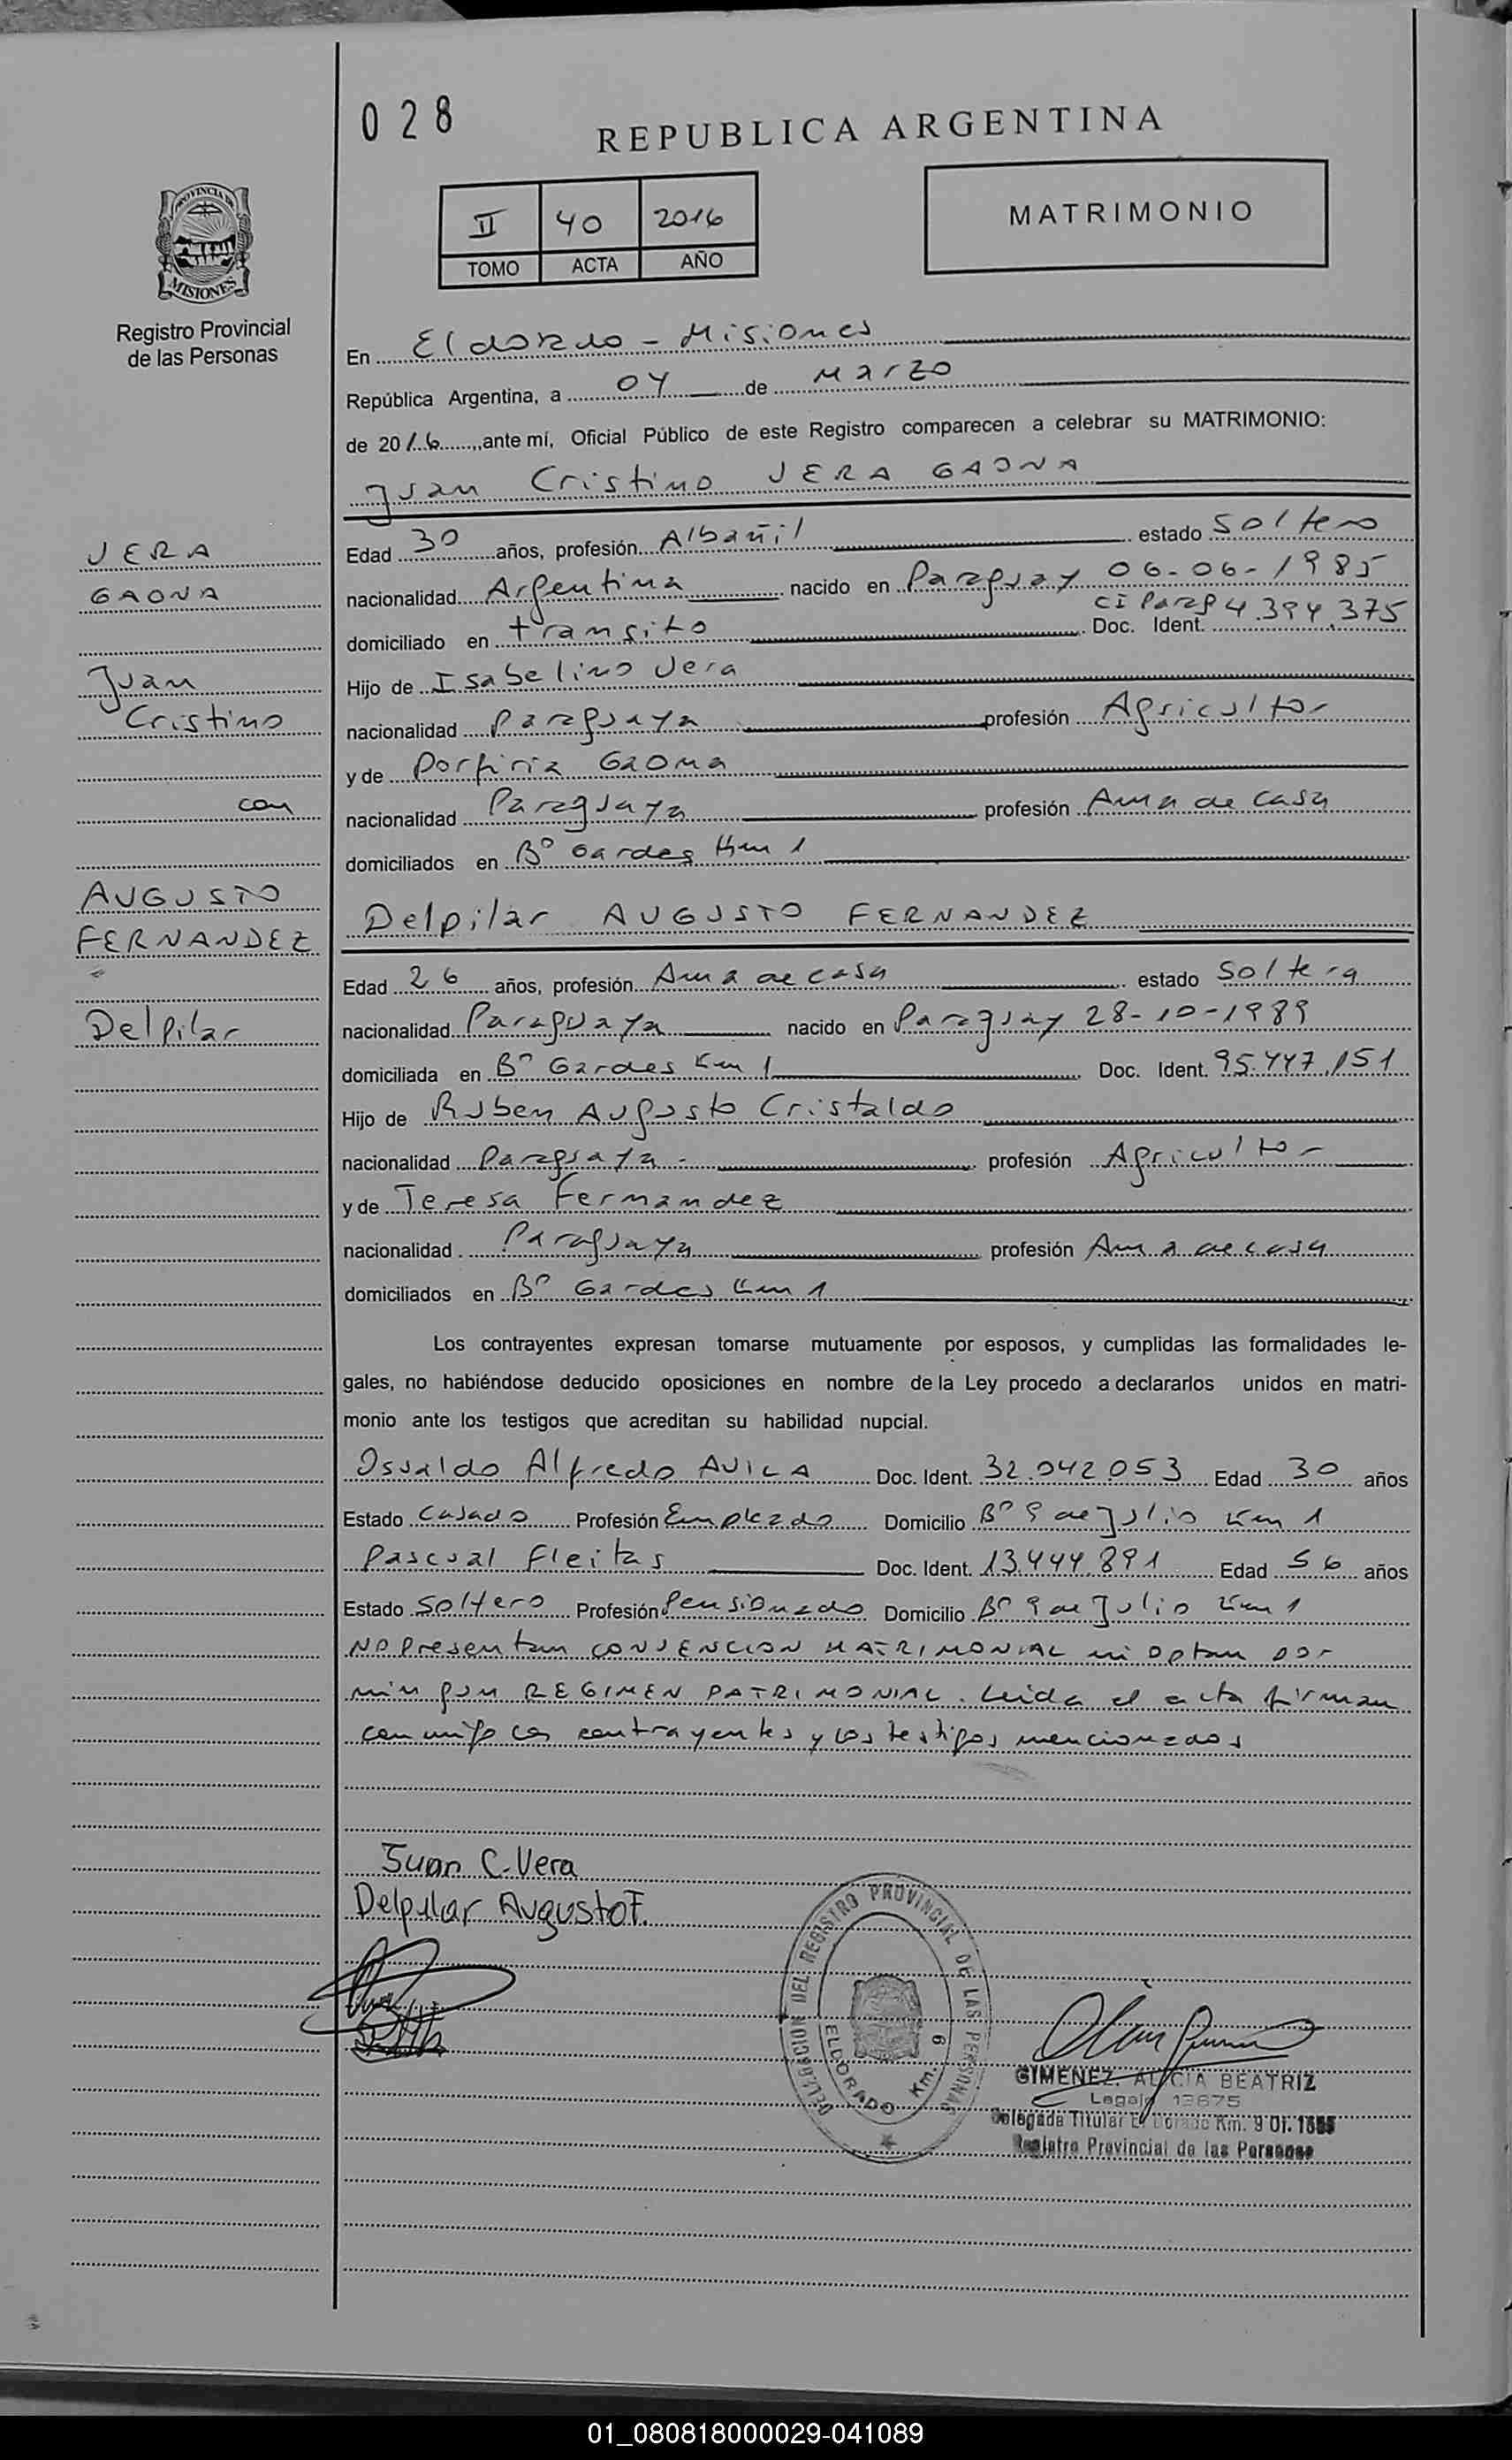 028
REPUBLICA ARGENTINA
PROVINCIA DE
MISIONES
Registro Provincial
de las Personas
II 40 2016
TOMO ACTA AÑO
MATRIMONIO
En Eldorado - Misiones
República Argentina, a 04 de Marzo
de 2016, ante mí, Oficial Público de este Registro comparecen a celebrar su MATRIMONIO:
Juan Cristino VERA GAONA
VERA
GAONA
Juan
Cristino
con
AUGUSTO
FERNANDEZ
Delpilar
Edad 30 años, profesión Albañil estado Soltero
nacionalidad Argentina nacido en Paraguay 06-06-1985
domiciliado en transito Doc. Ident. CI Parag 4.394.375
Hijo de Isabelino Vera
nacionalidad Paraguaya profesión Agricultor
y de Porfiria Gaona
nacionalidad Paraguaya profesión Ama de casa
domiciliados en Bº Gardes Km 1
Delpilar AUGUSTO FERNANDEZ
Edad 26 años, profesión Ama de casa estado Soltera
nacionalidad Paraguaya nacido en Paraguay 28-10-1989
domiciliada en Bº Gardes Km 1 Doc. Ident. 95.447.151
Hijo de Ruben Augusto Cristaldo
nacionalidad Paraguaya - profesión Agricultor
y de Teresa Fernandez
nacionalidad Paraguaya profesión Ama de casa
domiciliados en Bº Gardes Km 1
Los contrayentes expresan tomarse mutuamente por esposos, y cumplidas las formalidades le-
gales, no habiéndose deducido oposiciones en nombre de la Ley procedo a declararlos unidos en matri-
monio ante los testigos que acreditan su habilidad nupcial.
Osvaldo Alfredo AVILA Doc. Ident. 32.042.053 Edad 30 años
Estado Casado Profesión Empleado Domicilio Bº 9 de Julio Km 1
Pascual Fleitas Doc. Ident. 13.444.891 Edad 56 años
Estado Soltero Profesión Pensionado Domicilio Bº 9 de Julio Km 1
No presentan CONVENCION MATRIMONIAL ni optan por
ningun REGIMEN PATRIMONIAL. Leida el acta firman
conmigo los contrayentes y los testigos mencionados
Juan C. Vera
Delpilar Augusto F.
DELEGACION DEL REGISTRO PROVINCIAL DE LAS PERSONAS
ELDORADO Km. 9
GIMENEZ, ALICIA BEATRIZ
Legajo 13675
Delegada Titular El Dorado Km. 9 Of. 1855
Registro Provincial de las Personas
01_080818000029-041089